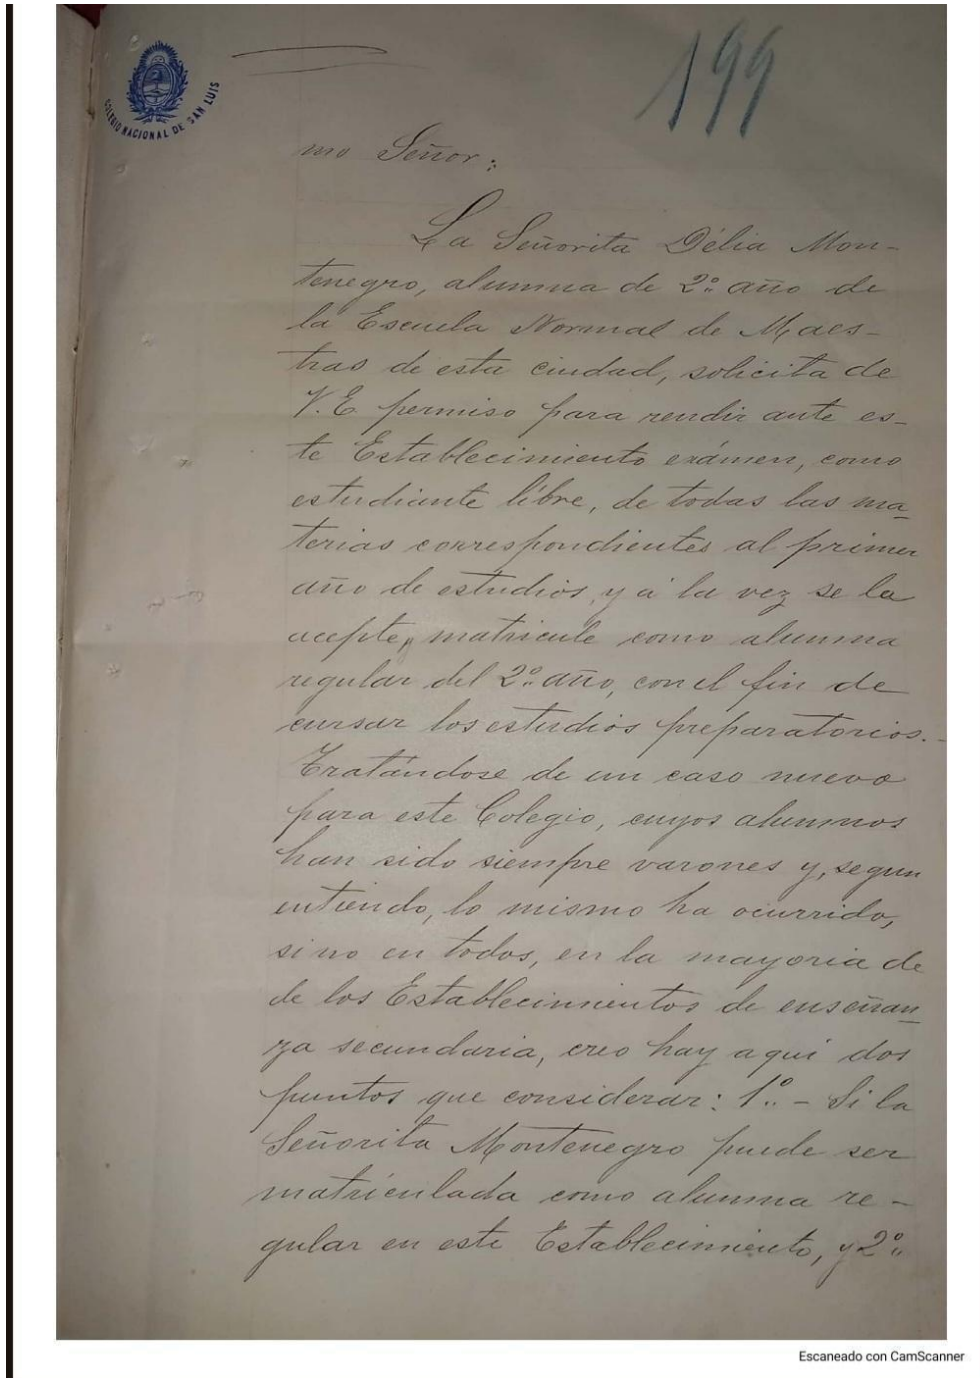 199
COLEGIO NACIONAL DE SAN LUIS
mo Señor:
La Señorita Délia Mon-
tenegro, alumna de 2º año de
la Escuela Normal de Maes-
tras de esta ciudad, solicita de
V. E. permiso para rendir ante es-
te Establecimiento exámen, como
estudiante libre, de todas las ma-
terias correspondientes al primer
año de estudios, y á la vez se la
acepte, matricule como alumna
regular del 2º año, con el fin de
cursar los estudios preparatorios.-
Tratándose de un caso nuevo
para este Colegio, cuyos alumnos
han sido siempre varones y, segun
entiendo, lo mismo ha ocurrido,
sino en todos, en la mayoria de
de los Establecimientos de enseñan-
za secundaria, creo hay aquí dos
puntos que considerar: 1º - Si la
Señorita Montenegro puede ser
matriculada como alumna re-
gular en este Establecimiento, y 2º
Escaneado con CamScanner